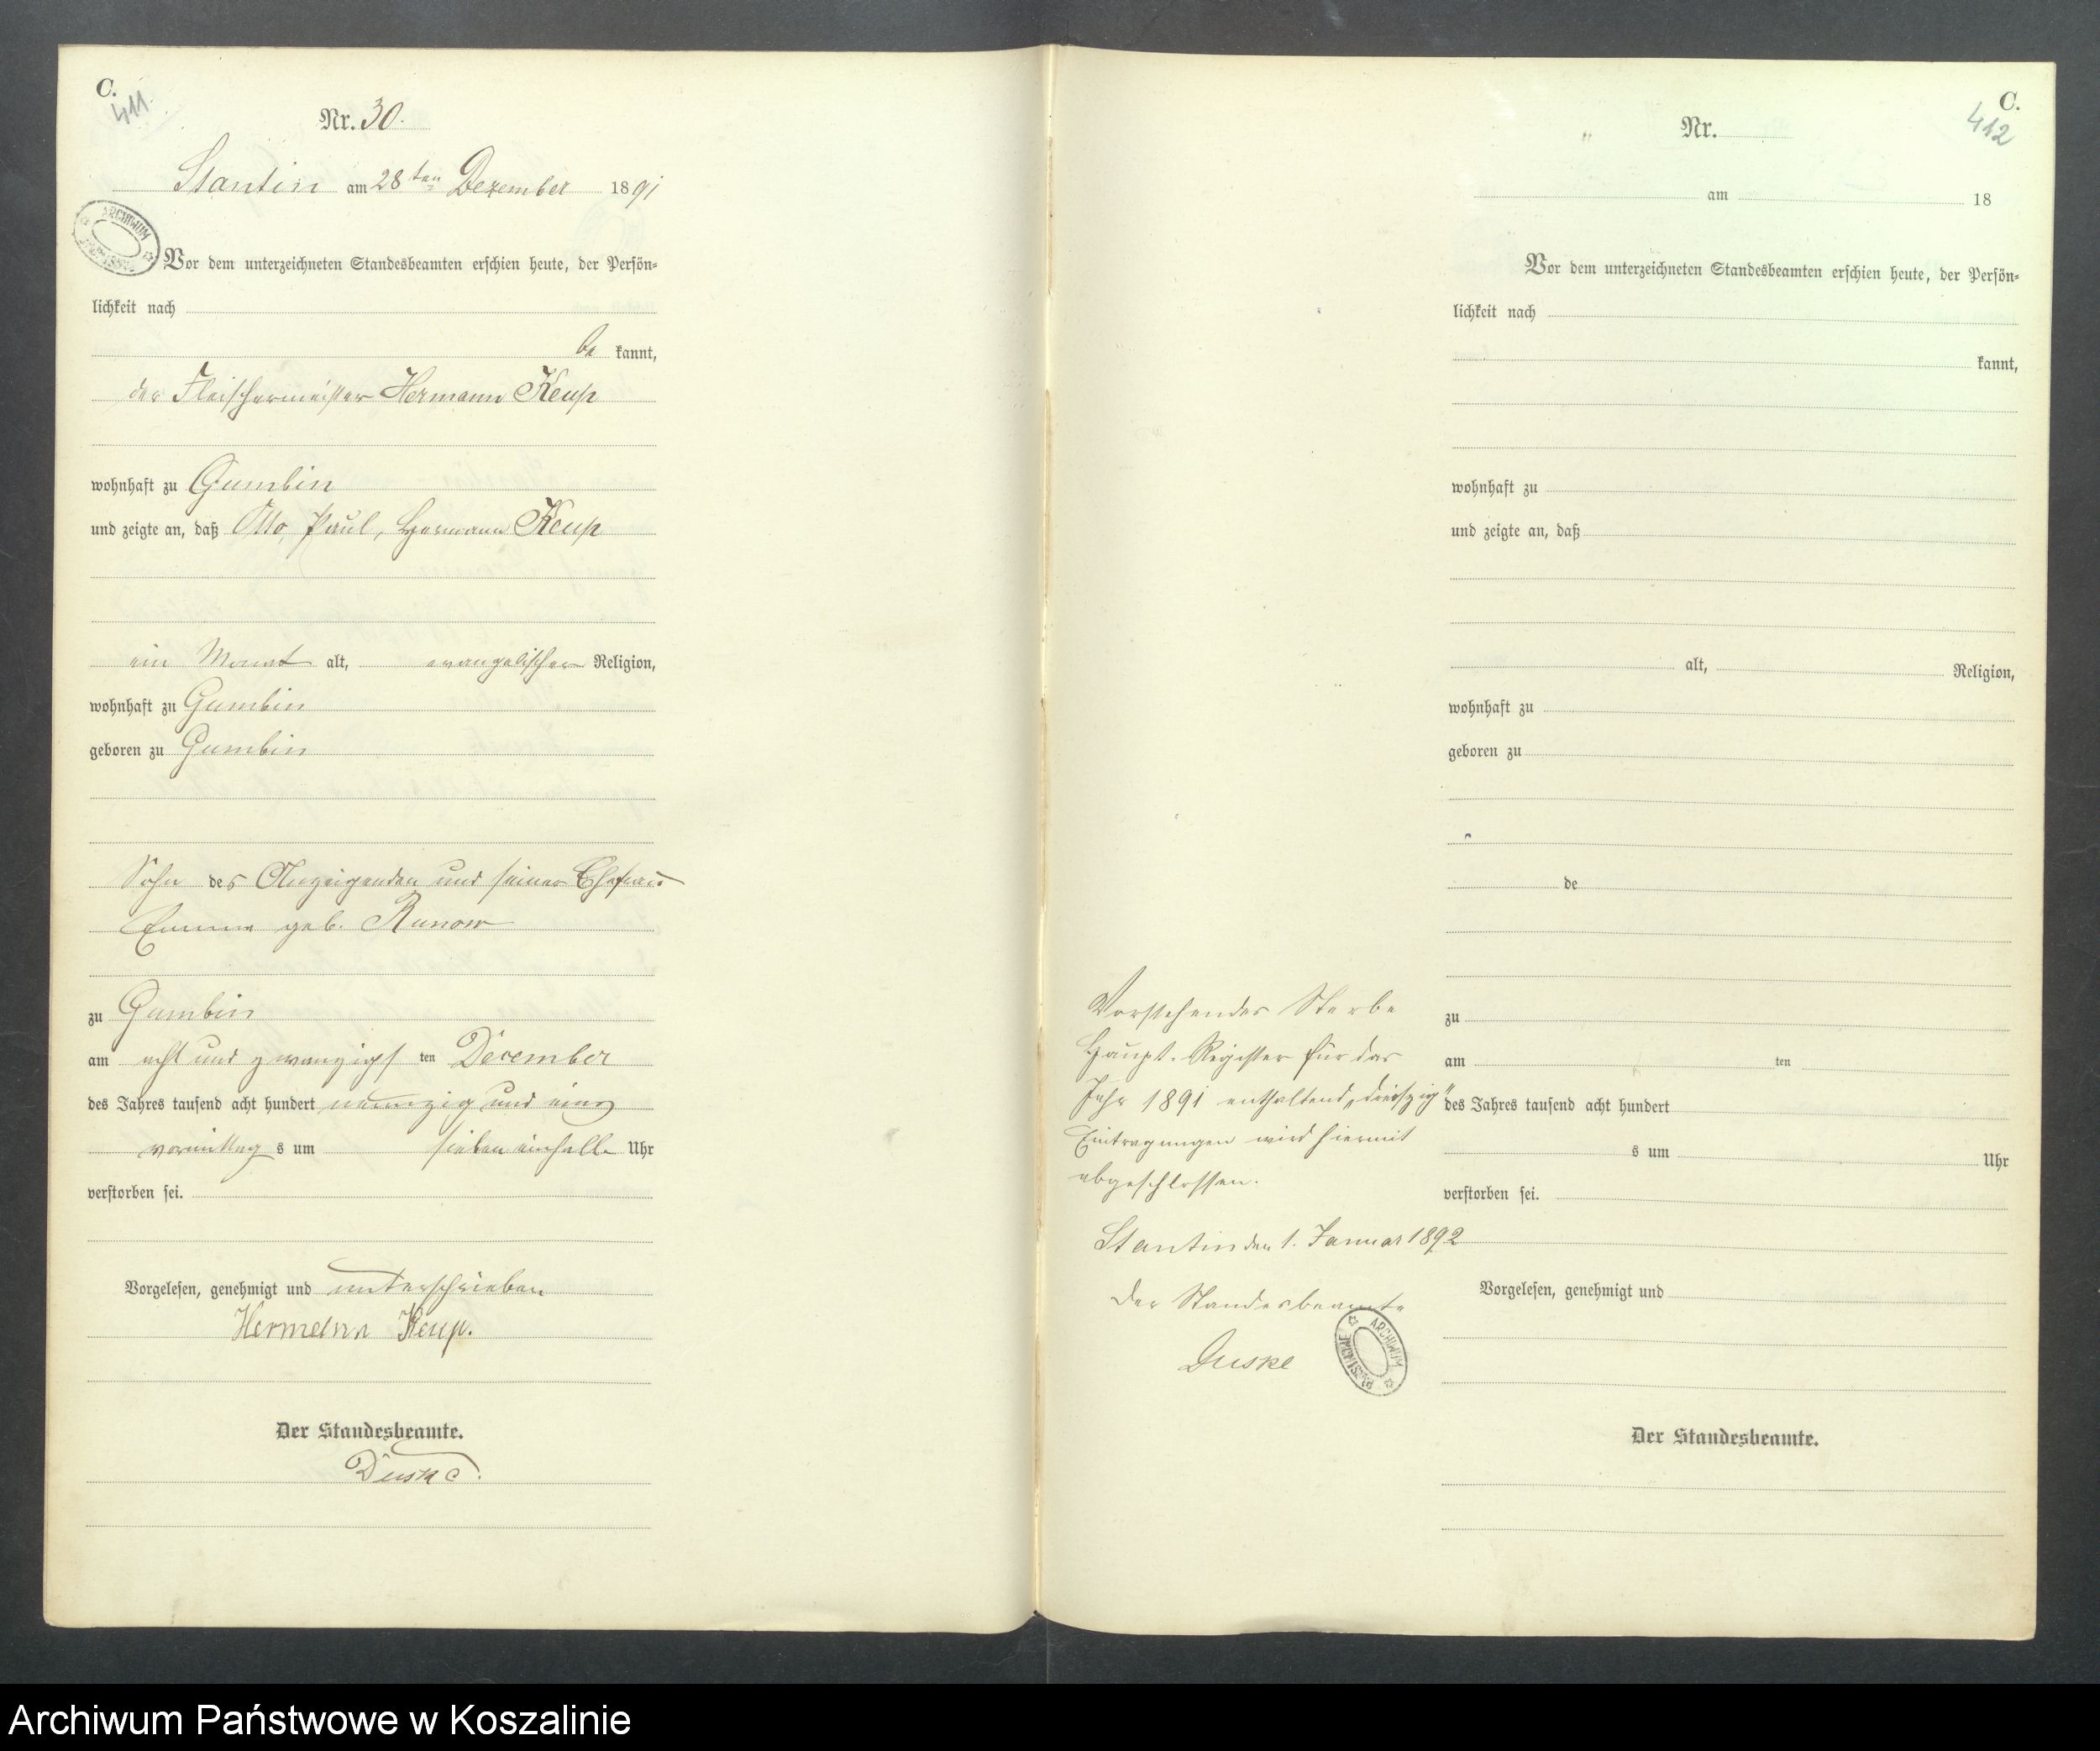 C.
411
Nr. 30.
Stantin am 28ten Dezember 1891
ARCHIWUM
Vor dem unterzeichneten Standesbeamten erschien heute, der Persön-
lichkeit nach
be kannt,
der Fleischermeister Hermann Keup
wohnhaft zu Gumbin
und zeigte an, daß Otto, Paul, Hermann Keup
ein Monat alt, evangelischer Religion,
wohnhaft zu Gumbin
geboren zu Gumbin
Sohn des Anzeigenden und seiner Ehefrau
Emma geb. Runow
zu Gumbin
am acht und zwanzigst ten December
des Jahres tausend acht hundert neunzig und eins
vormittag s um sieben einhalb Uhr
verstorben sei.
Vorgelesen, genehmigt und unterschrieben
Hermann Keup.
Der Standesbeamte.
Duske.
C.
412
Nr.
am 18
Vor dem unterzeichneten Standesbeamten erschien heute, der Persön-
lichkeit nach
kannt,
wohnhaft zu
und zeigte an, daß
alt, Religion,
wohnhaft zu
geboren zu
de
zu
am ten
des Jahres tausend acht hundert
s um Uhr
verstorben sei.
Vorgelesen, genehmigt und
Der Standesbeamte.
Vorstehendes Sterbe
Haupt-Register für das
Jahr 1891 enthaltend „dreiszig"
Eintragungen wird hiermit
abgeschlossen.
Stantin den 1. Januar 1892
Der Standesbeamte
Duske
ARCHIWUM
Archiwum Państwowe w Koszalinie